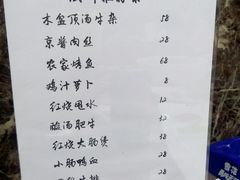 木盆顶汤牛杂 58
京酱肉丝 28
农家烤鱼 68
鸡汁萝卜 8
红烧甩水 32
酸汤肥牛 32
红烧大肠煲 38
小肠鸭血 28